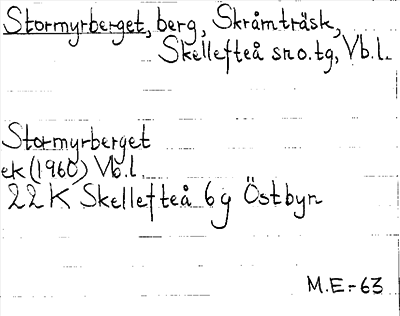 Stormyrberget, berg, Skråmträsk,
Skellefteå sn o. tg, Vb.l.
Stormyrberget
ek (1960) Vb.l.
22 K Skellefteå 6g Östbyn
M.E.-63